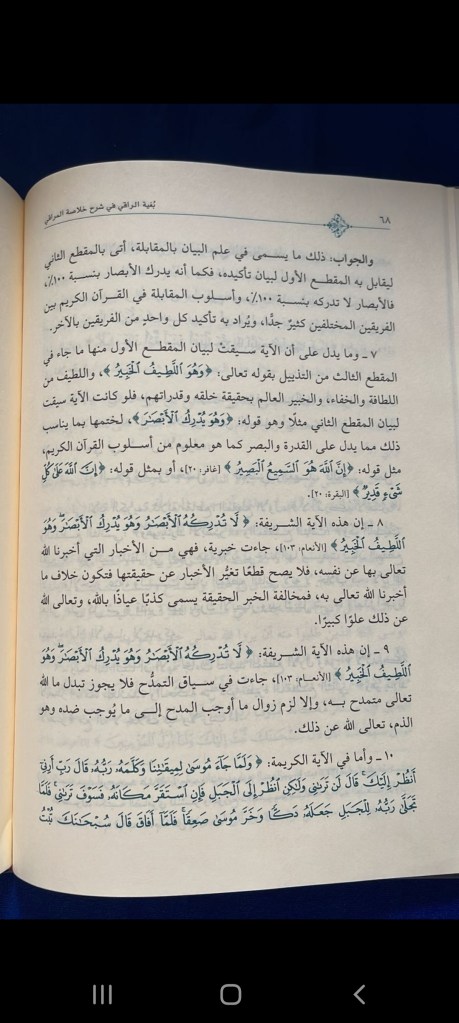 ٦٨
بُغية الراقي في شرح خلاصة المراقي
والجواب: ذلك ما يسمى في علم البيان بالمقابلة، أتى بالمقطع الثاني
ليقابل به المقطع الأول لبيان تأكيده، فكما أنه يدرك الأبصار بنسبة ١٠٠٪،
فالأبصار لا تدركه بنسبة ١٠٠٪، وأسلوب المقابلة في القرآن الكريم بين
الفريقين المختلفين كثيرٌ جدًّا، ويُراد به تأكيد كل واحدٍ من الفريقين بالآخر.
٧ ـ وما يدل على أن الآية سيقتْ لبيان المقطع الأول منها ما جاء في
المقطع الثالث من التذييل بقوله تعالى: ﴿وَهُوَ ٱللَّطِيفُ ٱلْخَبِيرُ﴾، واللطيف من
اللطافة والخفاء، والخبير العالم بحقيقة خلقه وقدراتهم، فلو كانت الآية سيقت
لبيان المقطع الثاني مثلًا وهو قوله: ﴿وَهُوَ يُدْرِكُ ٱلْأَبْصَٰرَ﴾، لختمها بما يناسب
ذلك مما يدل على القدرة والبصر كما هو معلوم من أسلوب القرآن الكريم،
مثل قوله: ﴿إِنَّ ٱللَّهَ هُوَ ٱلسَّمِيعُ ٱلْبَصِيرُ﴾ [غافر: ٢٠]، أو بمثل قوله: ﴿إِنَّ ٱللَّهَ عَلَىٰ كُلِّ
شَىْءٍ قَدِيرٌ﴾ [البقرة: ٢٠].
٨ ـ إن هذه الآية الشريفة: ﴿لَّا تُدْرِكُهُ ٱلْأَبْصَٰرُ وَهُوَ يُدْرِكُ ٱلْأَبْصَٰرَ ۖ وَهُوَ
ٱللَّطِيفُ ٱلْخَبِيرُ﴾ [الأنعام: ١٠٣]، جاءت خبرية، فهي من الأخبار التي أخبرنا الله
تعالى بها عن نفسه، فلا يصح قطعًا تغيُّر الأخبار عن حقيقتها فتكون خلاف ما
أخبرنا الله تعالى به، فمخالفة الخبر الحقيقة يسمى كذبًا عياذًا بالله، وتعالى الله
عن ذلك علوًا كبيرًا.
٩ ـ إن هذه الآية الشريفة: ﴿لَّا تُدْرِكُهُ ٱلْأَبْصَٰرُ وَهُوَ يُدْرِكُ ٱلْأَبْصَٰرَ ۖ وَهُوَ
ٱللَّطِيفُ ٱلْخَبِيرُ﴾ [الأنعام: ١٠٣]، جاءت في سياق التمدُّح فلا يجوز تبدل ما الله
تعالى متمدح به، وإلا لزم زوال ما أوجب المدح إلى ما يُوجب ضده وهو
الذم، تعالى الله عن ذلك.
١٠ ـ وأما في الآية الكريمة: ﴿وَلَمَّا جَآءَ مُوسَىٰ لِمِيقَٰتِنَا وَكَلَّمَهُۥ رَبُّهُۥ قَالَ رَبِّ أَرِنِىٓ
أَنظُرْ إِلَيْكَ ۚ قَالَ لَن تَرَىٰنِى وَلَٰكِنِ ٱنظُرْ إِلَى ٱلْجَبَلِ فَإِنِ ٱسْتَقَرَّ مَكَانَهُۥ فَسَوْفَ تَرَىٰنِى ۚ فَلَمَّا
تَجَلَّىٰ رَبُّهُۥ لِلْجَبَلِ جَعَلَهُۥ دَكًّا وَخَرَّ مُوسَىٰ صَعِقًا ۚ فَلَمَّآ أَفَاقَ قَالَ سُبْحَٰنَكَ تُبْتُ